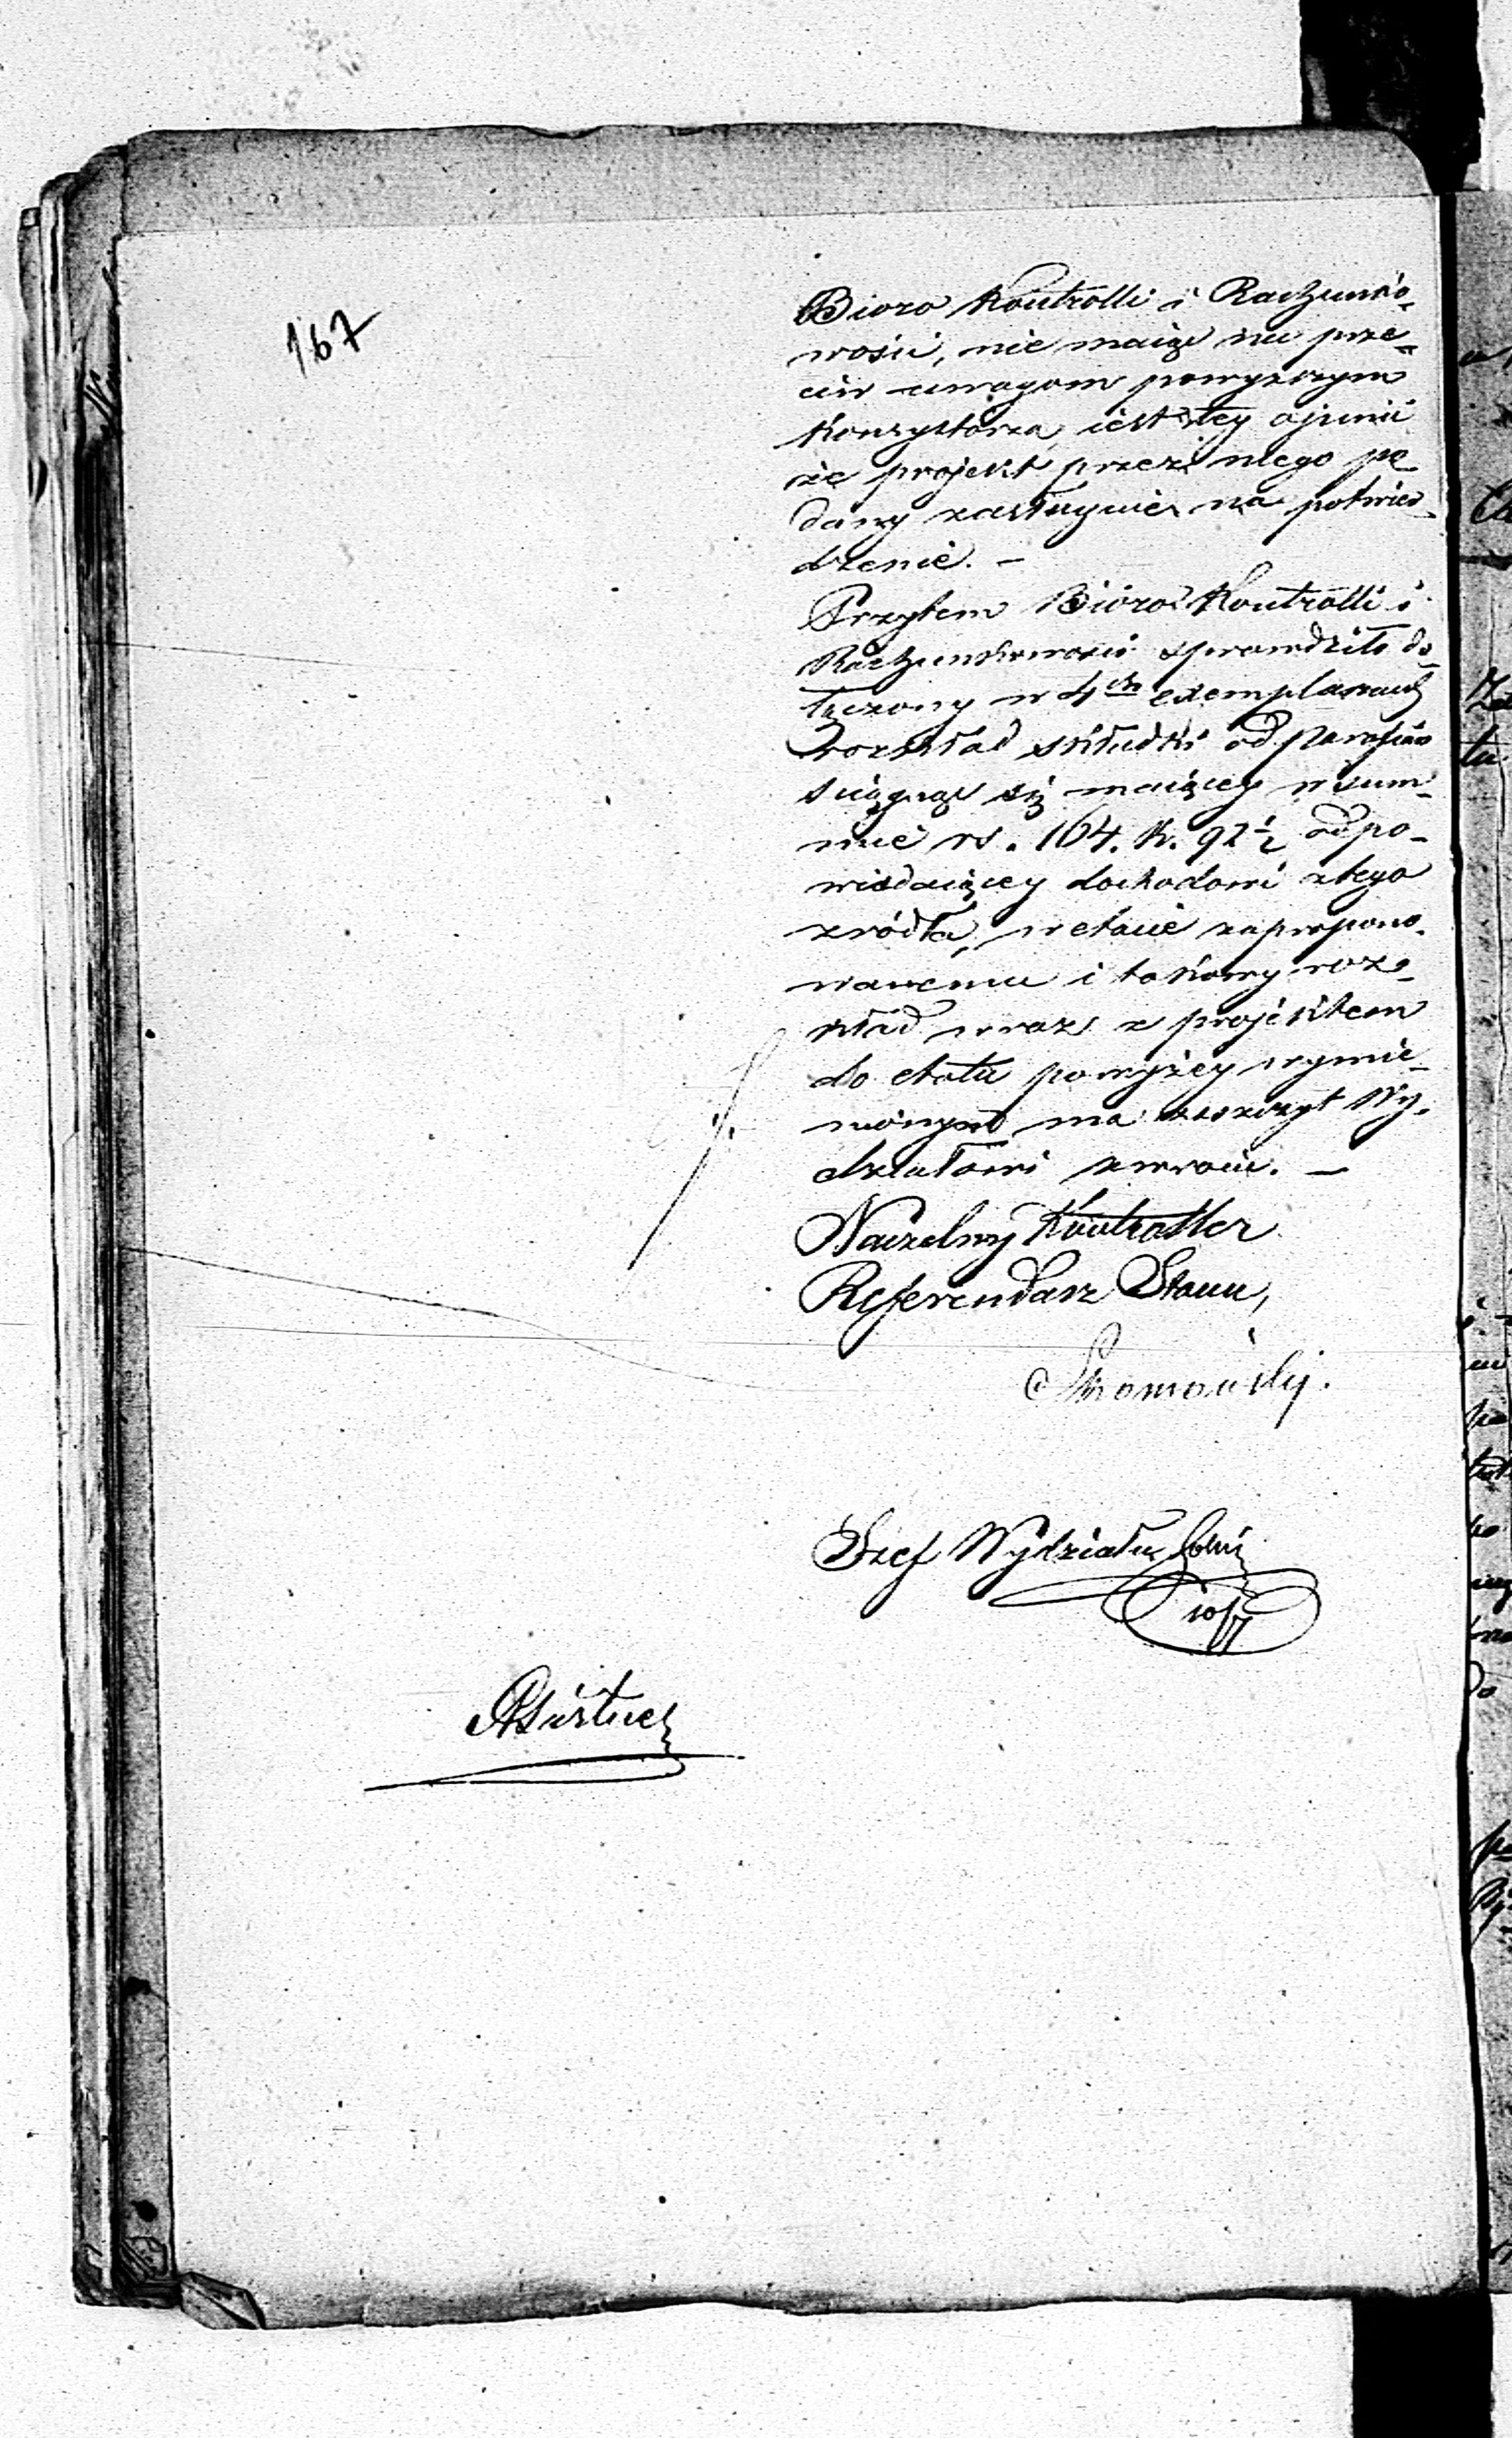 167
Bioro Kontrolli i Rachunko-
wości, nie maiąc nic prze-
ciw uwagom powyższym
Konsystorza, iest tey opinii
że projekt przez niego po-
dany zasługuie na potwier-
dzenie. —
Przytem Bioro Kontrolli i
Rachunkowości sprawdziło do-
łączony w 4ch exemplarzach
rozkład składki od parafian
ściągnąć się maiącey w sum-
mie rs. 164. k. 92 1/2 odpo-
wiadaiącey dochodowi z tego
źródła, w etacie zapropono-
wanemu i takowy roz-
kład wraz z projektem
do etatu powyżey wymie-
nionym ma zaszczyt Wy-
działowi zwrócić. —
Naczelny Kontroller
Referendarz Stanu,
Szef Wydziału